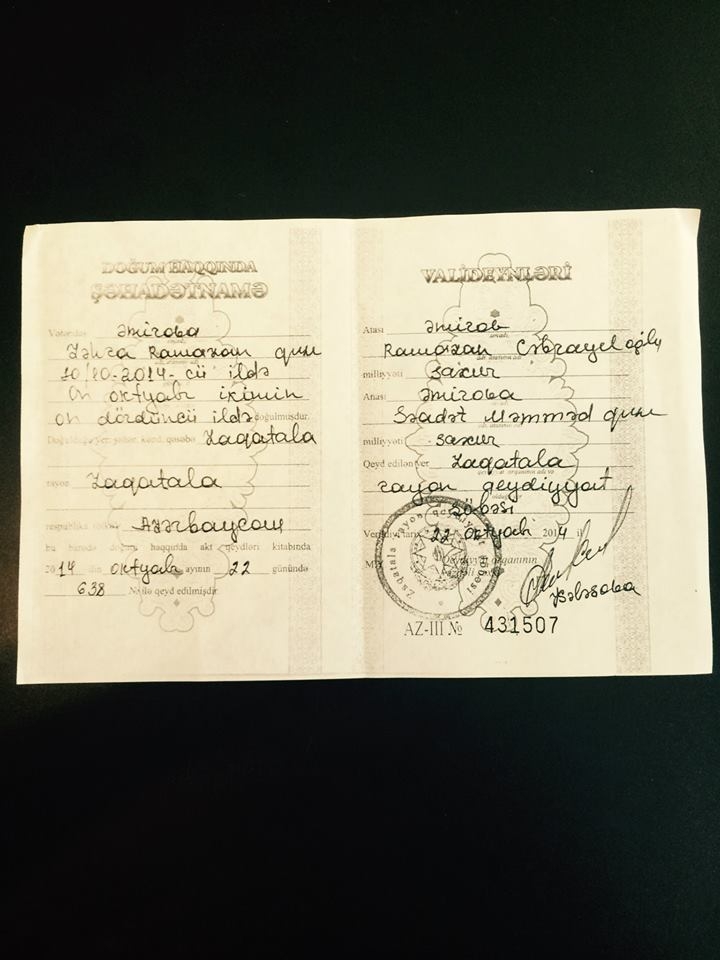 DOĞUM HAQQINDA
ŞƏHADƏTNAMƏ
Vətəndaş Əmirova
Zəhra Ramazan qızı
10/10-2014-cü ildə
On oktyabr iki min
on dördüncü ildə doğulmuşdur.
Doğulduğu yer: şəhər, kənd, qəsəbə Zaqatala
rayon Zaqatala
respublika Azərbaycan
bu barədə doğum haqqında akt qeydləri kitabında
2014 oktyabr ayının 22 günündə
638 № ilə qeyd edilmişdir.
VALİDEYNLƏRİ
Atası Əmirov
Ramazan Cəbrayel oğlu
milliyyəti saxur
Anası Əmirova
Səadət Məmməd qızı
milliyyəti saxur
Qeyd edilən yer Zaqatala
rayon qeydiyyat
şöbəsi
22 oktyabr 2014 il
Qeydiyyat orqanının
Zaqatala rayon qeydiyyat şöbəsi
AZ-III № 431507